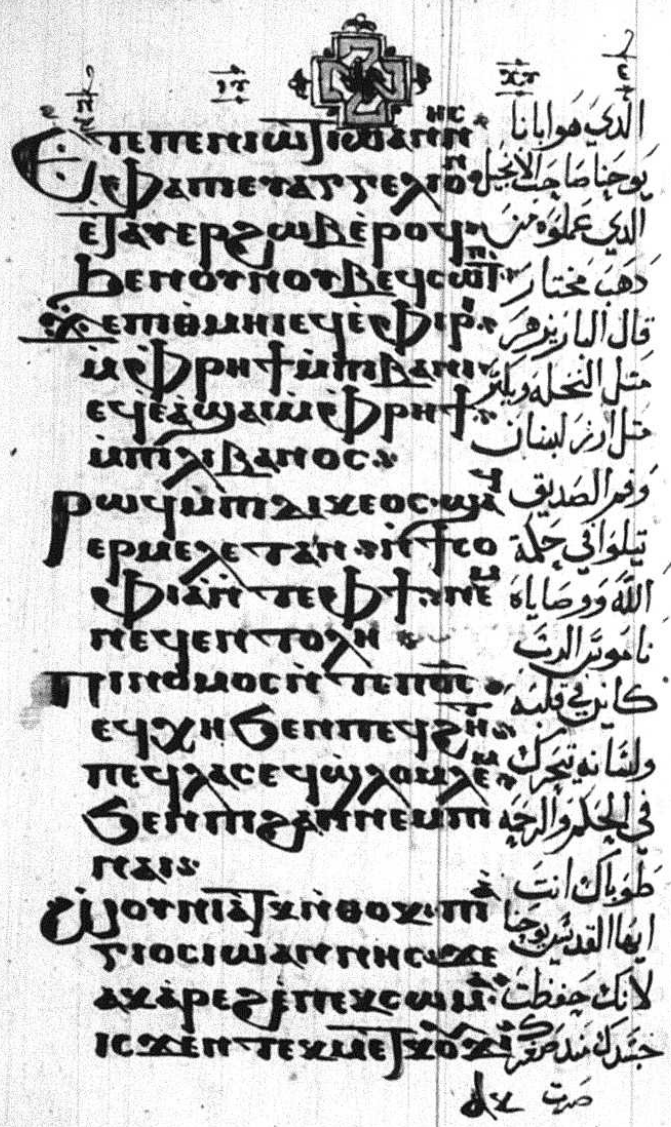 Ⲉⲧⲉ ⲡⲉⲛⲓⲱⲧ ⲓⲱⲁⲛⲛⲏⲥ
ⲫⲁ ⲡⲓⲉⲩⲁⲅⲅⲉⲗⲓⲟⲛ
ⲉⲧⲁⲩⲉⲣϩⲱⲃ ⲉⲣⲟϥ
ϧⲉⲛ ⲟⲩⲛⲟⲩⲃ ⲉϥⲥⲱⲧⲡ
ϫⲉ ⲡⲓⲑⲙⲏⲓ ⲉϥⲉⲫⲓⲣⲓ
ⲙ̀ⲫⲣⲏϯ ⲙ̀ⲡⲓⲃⲁⲛⲓ
ⲉϥⲉⲁϣⲁⲓ ⲙ̀ⲫⲣⲏϯ
ⲙ̀ⲡⲓⲗⲓⲃⲁⲛⲟⲥ
ⲣⲱϥ ⲙ̀ⲡⲓⲇⲓⲕⲉⲟⲥ ϣⲁϥ
ⲉⲣⲙⲉⲗⲉⲧⲁⲛ ⲛ̀ϯⲥⲟ
ⲫⲓⲁ ⲛ̀ⲧⲉ ⲫϯ ⲛⲉⲙ
ⲛⲉϥⲉⲛⲧⲟⲗⲏ
ⲡⲓⲛⲟⲙⲟⲥ ⲛ̀ⲧⲉ ⲡⲟ̅ⲥ̅
ⲉϥⲭⲏ ϧⲉⲛ ⲡⲉϥϩⲏⲧ
ⲡⲉϥⲗⲁⲥ ⲉϥⲱⲗⲟⲙⲗⲉⲙ
ϧⲉⲛ ⲡⲓϩⲁⲡ ⲛⲉⲙ ⲡⲓ
ⲛⲁⲓ
ⲱⲟⲩⲛⲓⲁⲧⲕ ⲛ̀ⲑⲟⲕ ⲡⲓⲁ
ⲅⲓⲟⲥ ⲓⲱⲁⲛⲛⲏⲥ ϫⲉ
ⲁⲕⲁⲣⲉϩ ⲉ̀ⲡⲉⲕⲥⲱⲙⲁ
ⲓⲥϫⲉⲛ ⲧⲉⲕⲙⲉⲧⲕⲟⲩϫⲓ
الذي هو ابانا
يوحنا صاحب الانجيل
الذي عملوه من
دهب مختار
قال البار يزهر
متل النخله ويكثر
متل ارز لبنان
وفم الصديق
يتلوا في حكمة
الله ووصاياه
ناموس الرب
كاين في قلبه
ولسانه يتحرك
في الحكم والرحمه
طوباك انت
ايها القديس يوحنا
لانك حفظت
جسدك منذ صغرك
صرت ⲁⲕ